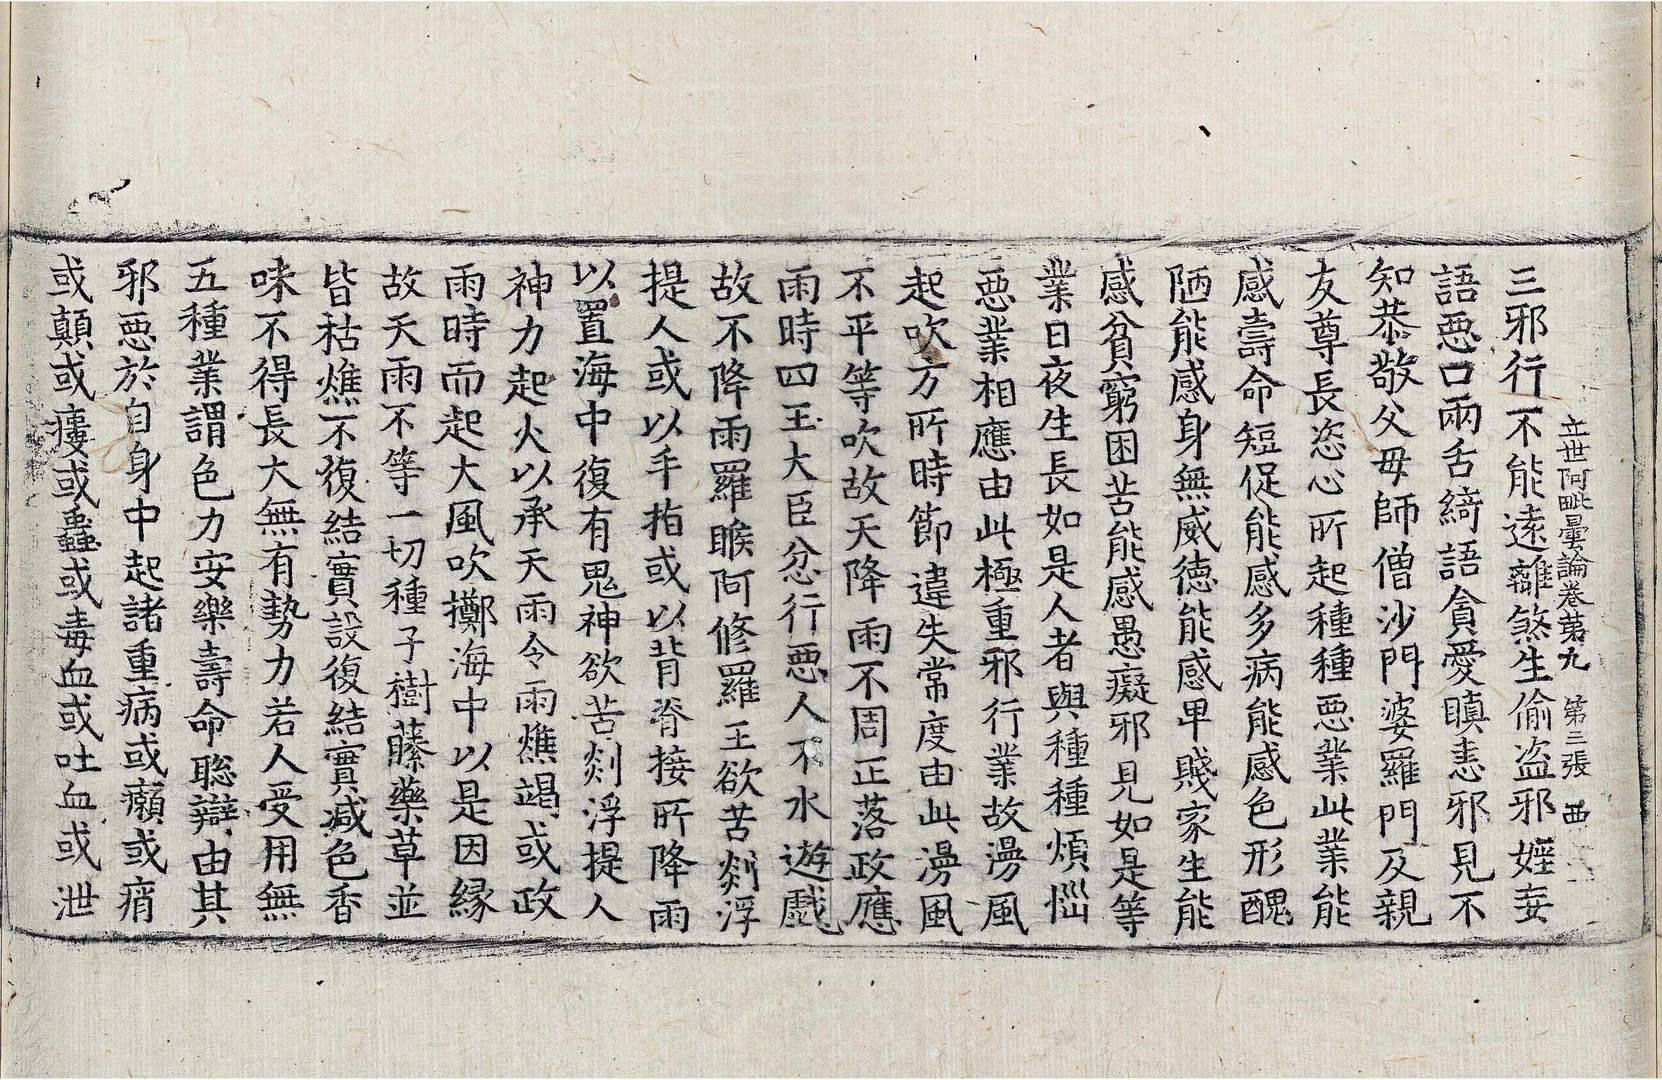 立世阿毗曇論卷第九 第三張 西
三邪行不能遠離煞生偷盗邪婬妄
語惡口兩舌綺語貪愛瞋恚邪見不
知恭敬父母師僧沙門婆羅門及親
友尊長恣心所起種種惡業此業能
感壽命短促能感多病能感色形醜
陋能感身無威德能感卑賤家生能
感貧窮困苦能感愚癡邪見如是等
業日夜生長如是人者與種種煩惱
惡業相應由此極重邪行業故澇風
起吹方所時節違失常度由此澇風
不平等吹故天降雨不周正落政應
雨時四王大臣忿行惡人不水遊戲
故不降雨羅睺阿修羅王欲苦剡浮
提人或以手指或以背脊接所降雨
以置海中復有鬼神欲苦剡浮提人
神力起火以承天雨令雨燋竭或政
雨時而起大風吹擲海中以是因緣
故天雨不等一切種子樹藤藥草並
皆枯燋不復結實設復結實減色香
味不得長大無有勢力若人受用無
五種業謂色力安樂壽命聡辯由其
邪惡於自身中起諸重病或癩或痟
或顛或瘻或蠱或毒血或吐血或泄